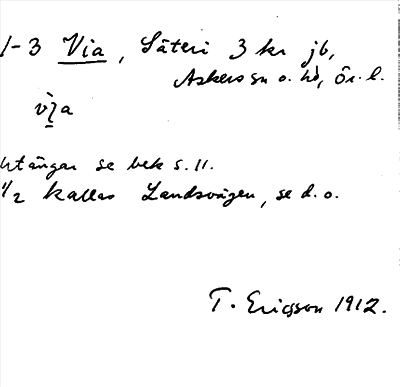 1-3 Via, Säteri 3 kr jb,
Askers sn o. hd, Ör. l.
vìa
Utängar se bek s. 11.
1/2 kallas Landsvägen, se d. o.
T. Ericsson 1912.